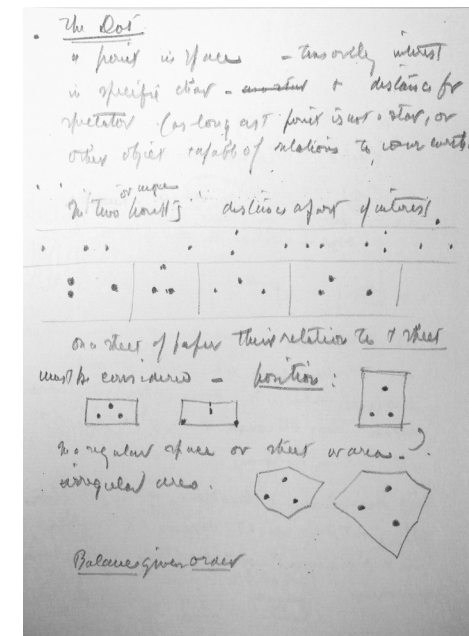 The Dot
a point in space -
in specific - + distance for
spectator (as long as t point is not a star, or
other object capable of relations to
or more
In two points distances apart of interest.
on a sheet of paper their relation to t sheet
must be considered - position:
In a regular space or sheet or area -
irregular area.
Balance gives order